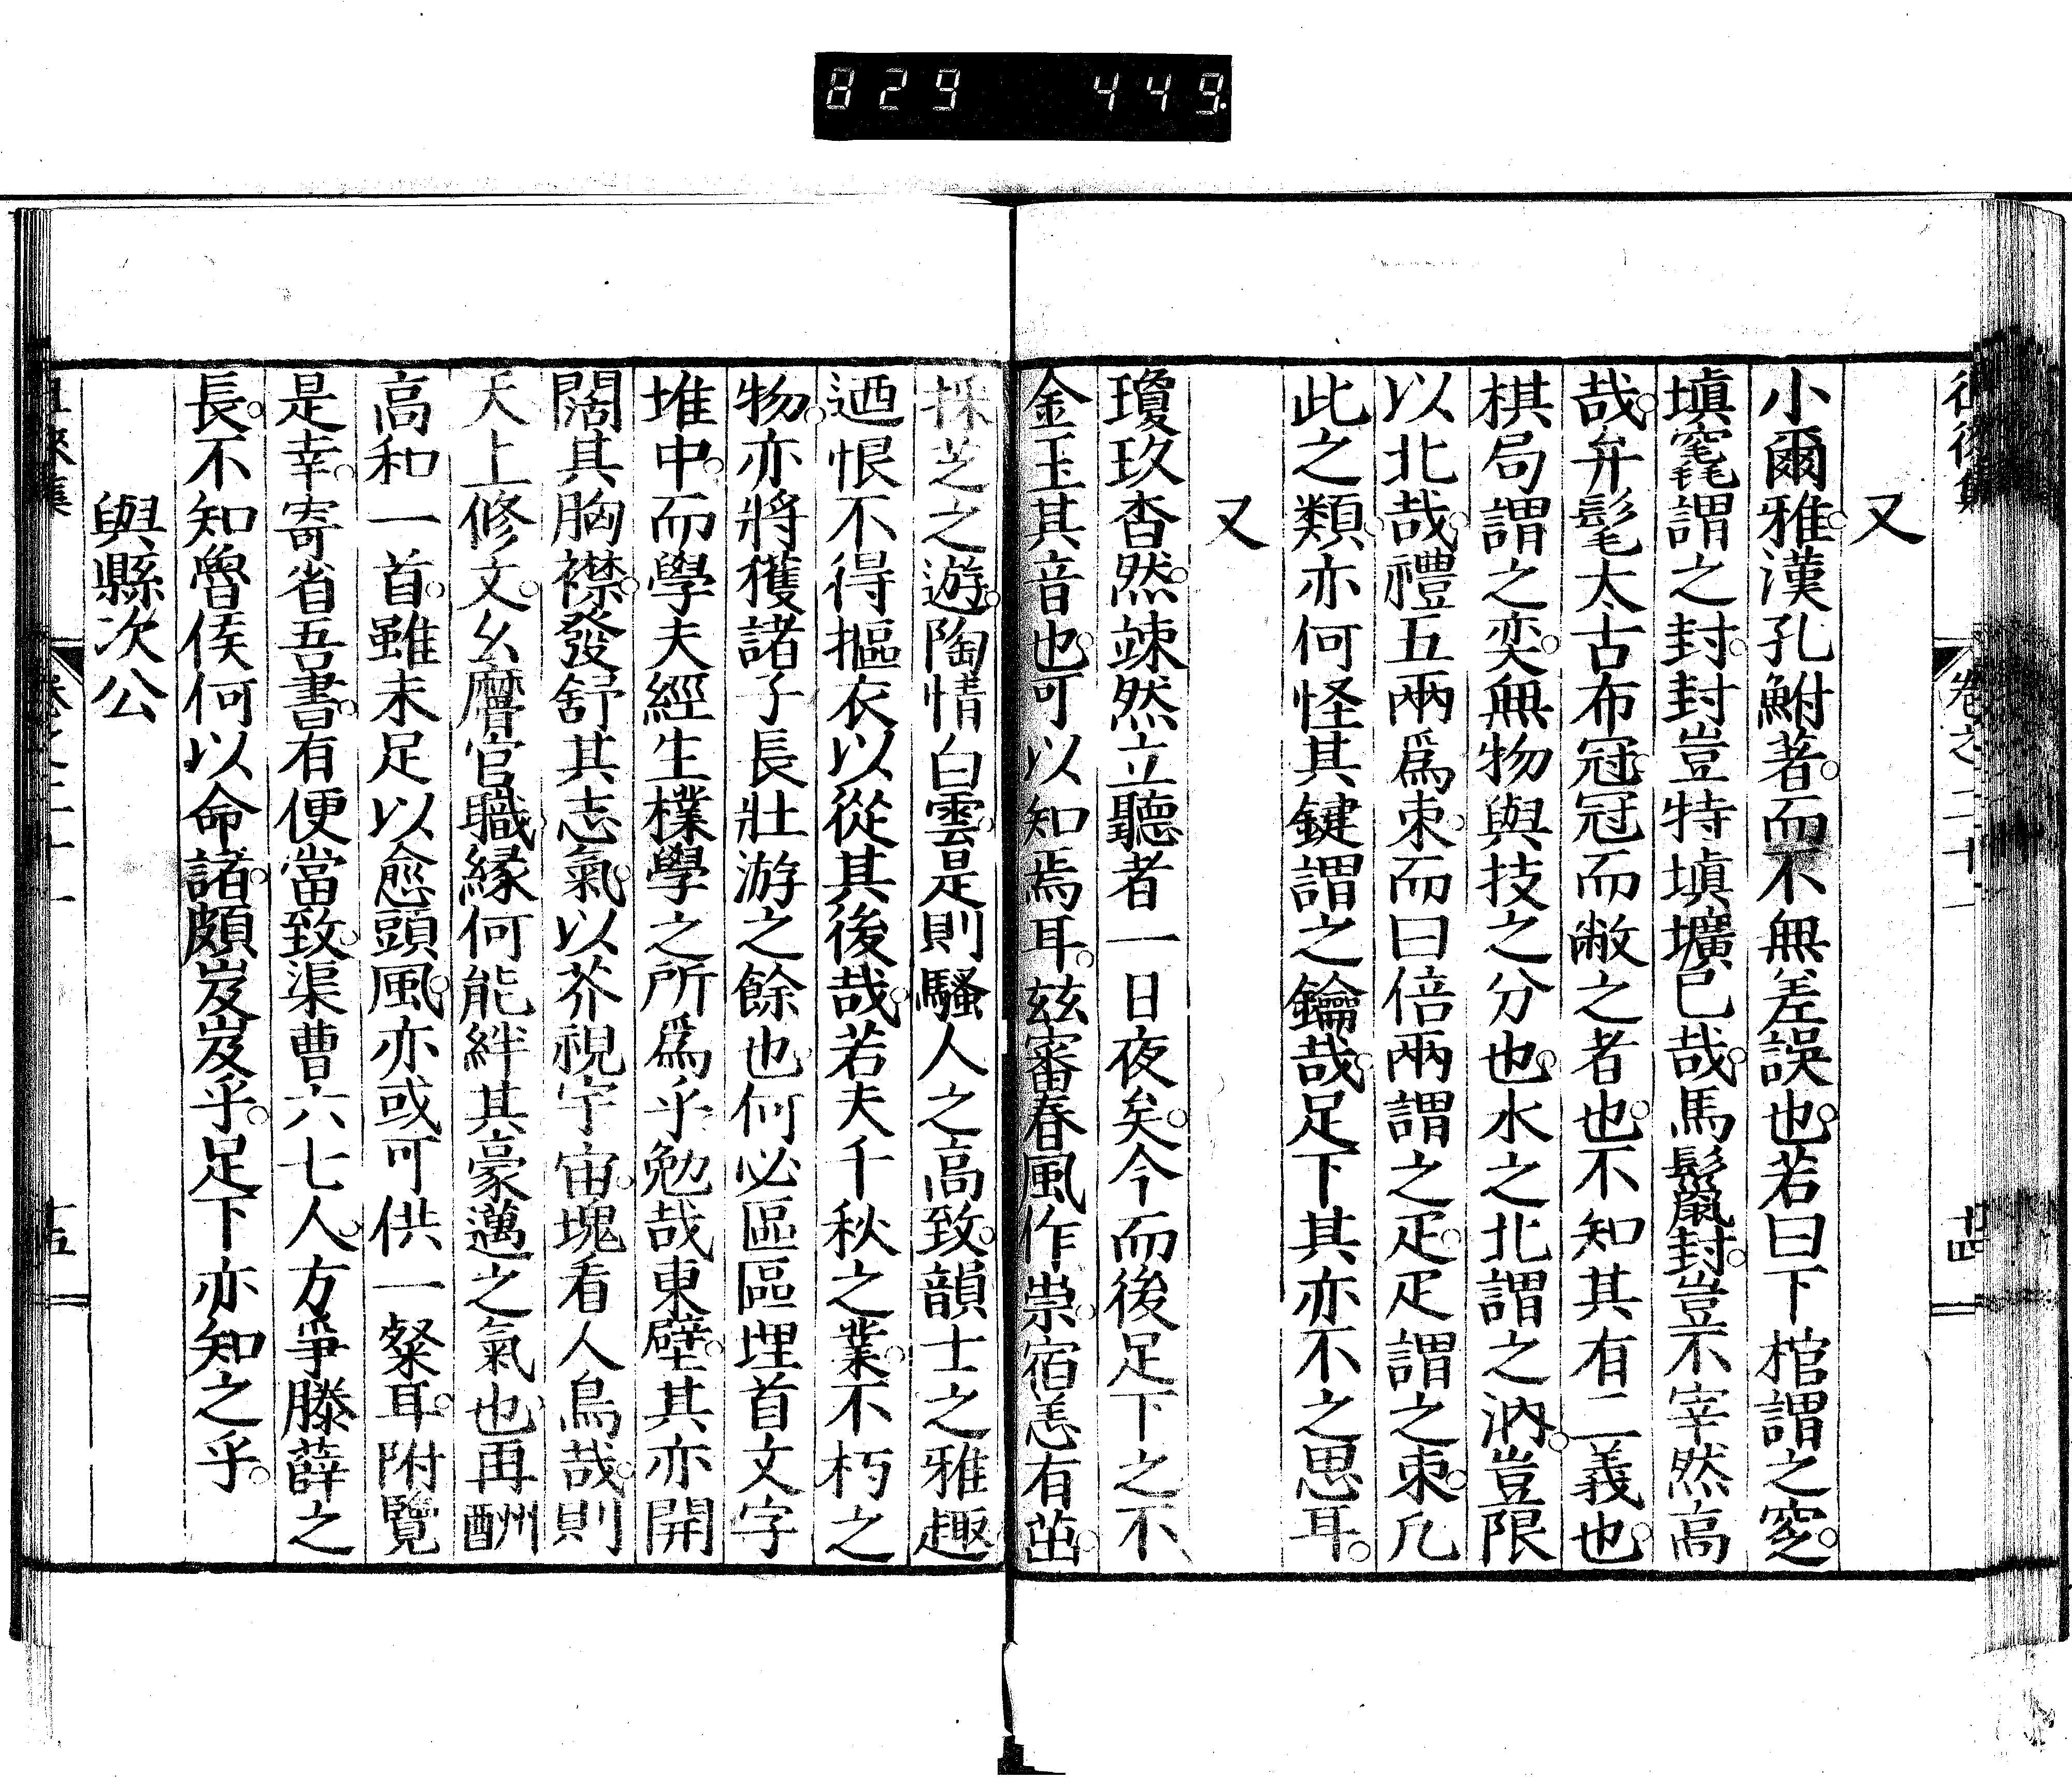 829 449.
又
小爾雅漢孔鮒著而不無差誤也若曰下棺謂之窆
塡竁謂之封封豈特塡壙已哉馬鬛封豈不宰然高
哉弁髦太古布冠冠而敝之者也不知其有二義也
棋局謂之奕無物與技之分也水之北謂之汭豈限
以北哉禮五兩爲束而曰倍兩謂之疋疋謂之束凡
此之類亦何怪其鍵謂之鑰哉足下其亦不之思耳
又
瓊玖杳然竦然立聽者一日夜矣今而後足下之不
金玉其音也可以知焉耳茲審春風作祟宿恙有茁
採芝之遊陶情白雲是則騷人之高致韻士之雅趣
迺恨不得摳衣以從其後哉若夫千秋之業不朽之
物亦將獲諸子長壯游之餘也何必區區埋首文字
堆中而學夫經生樸學之所爲乎勉哉東壁其亦開
闊其胸襟發舒其志氣以芥視宇宙塊看人鳥哉則
天上修文幺麿官職緣何能絆其豪邁之氣也再酬
高和一首雖未足以愈頭風亦或可供一粲耳附覽
是幸寄省吾書有便當致渠曹六七人方爭滕薛之
長不知魯侯何以命諸頗岌岌乎足下亦知之乎
與縣次公